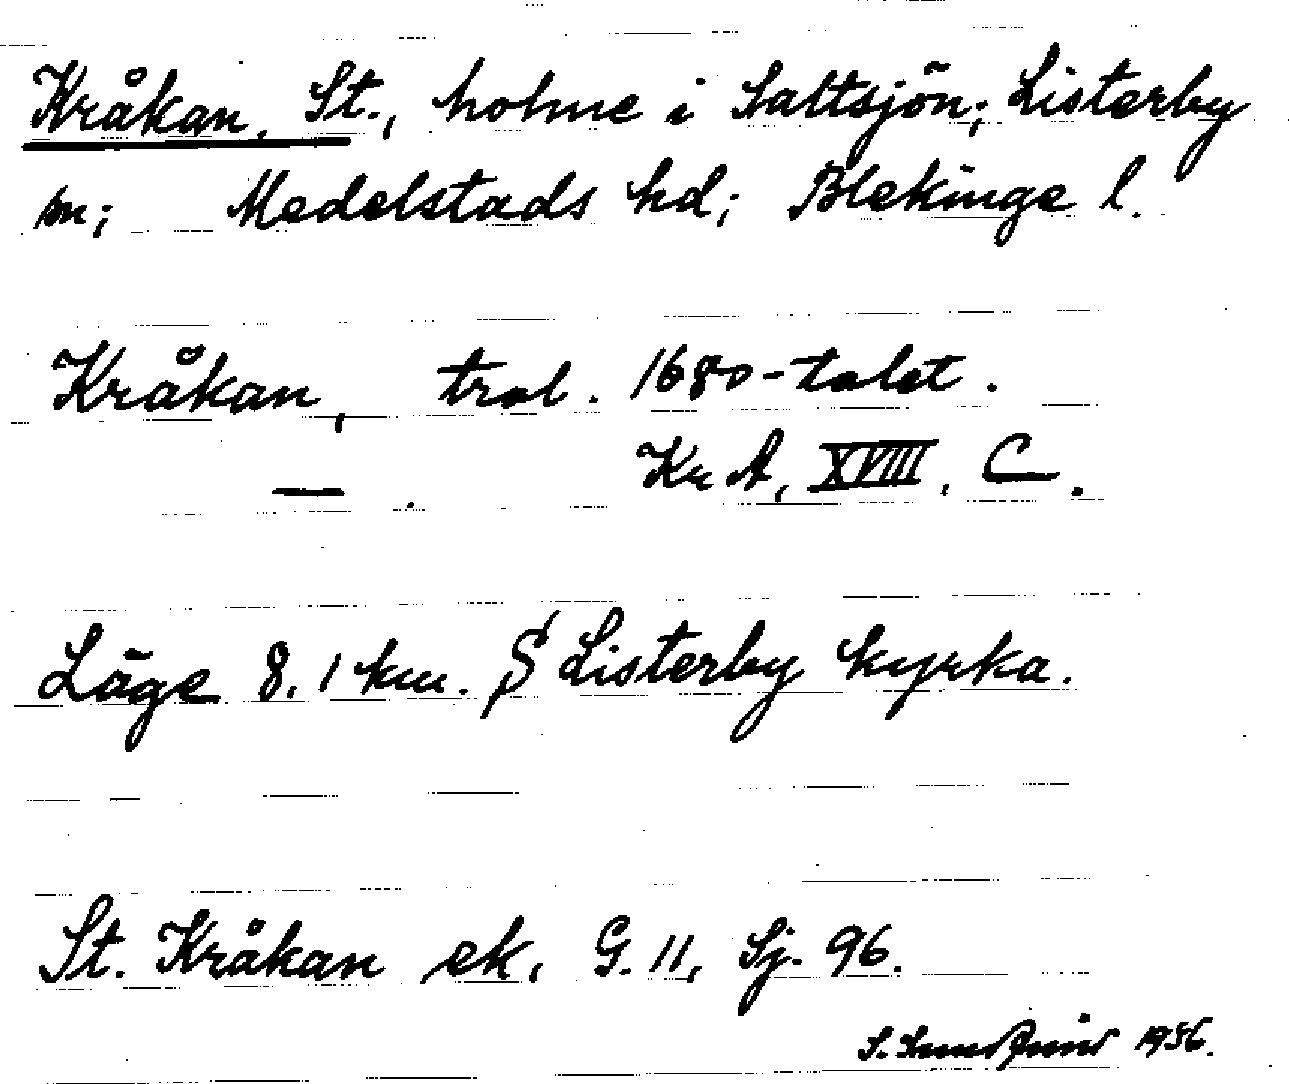 Kråkan, St., holme i Saltsjön; Listerby
sn; Medelstads hd; Blekinge l.
Kråkan, trol. 1680-talet.
— . KrA, XVIII, C.
Läge 8,1 km. S Listerby kyrka.
St. Kråkan ek, G. 11, Sj. 96.
S. 1936.